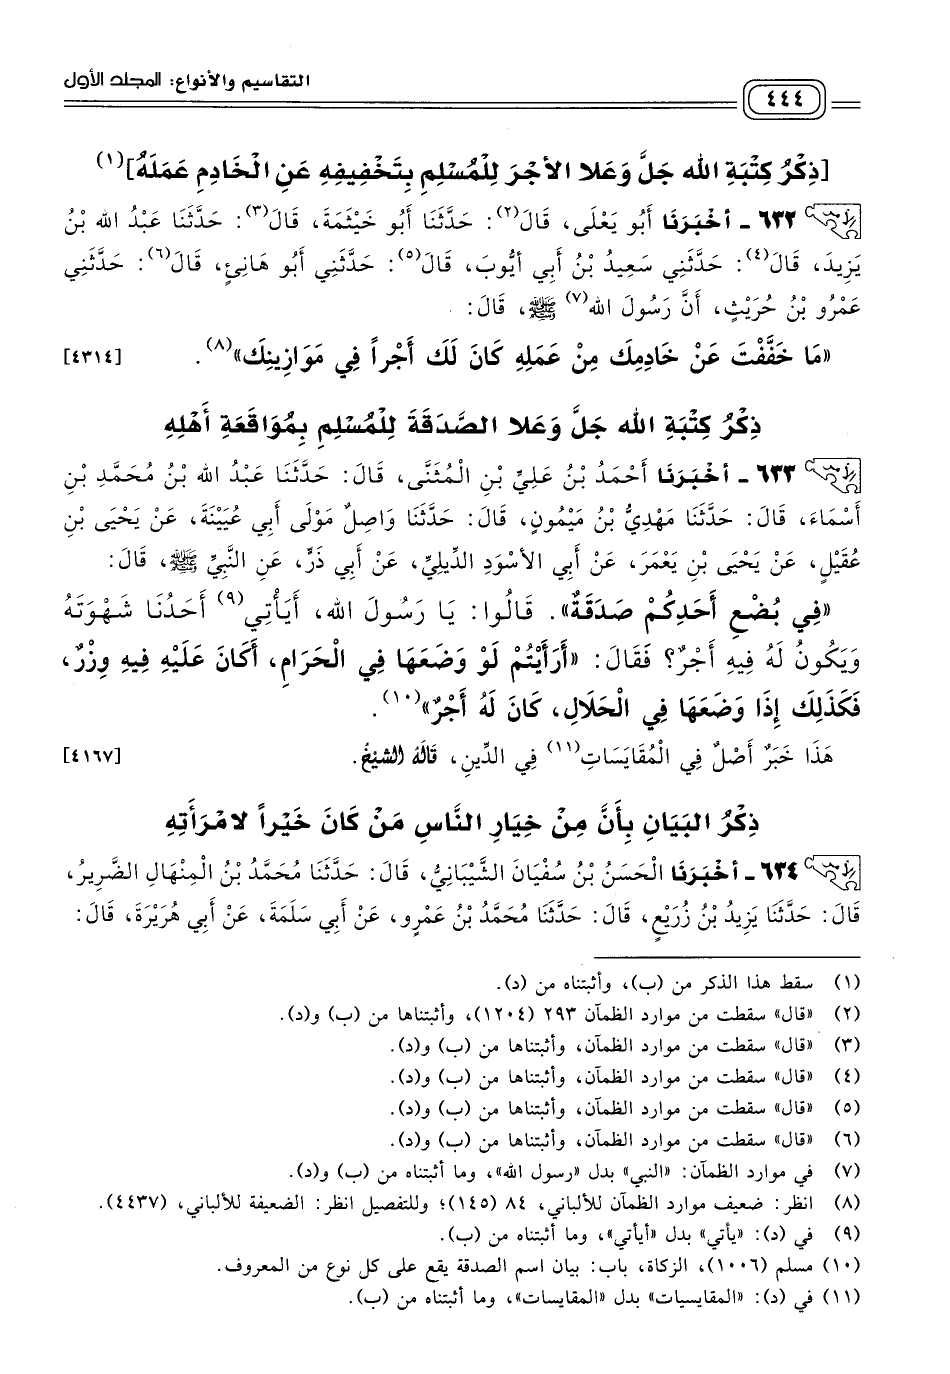 التقاسيم والأنواع: المجلد الأول
٤٤٤
[ذِكْرُ كِتْبَةِ الله جَلَّ وَعَلا الأجْرَ لِلْمُسْلِمِ بِتَخْفِيفِهِ عَنِ الْخَادِمِ عَمَلَهُ](١)
٦٣٢ - أخْبَرَنَا أَبُو يَعْلَى، قَالَ(٢): حَدَّثَنَا أَبُو خَيْثَمَةَ، قَالَ(٣): حَدَّثَنَا عَبْدُ الله بْنُ
يَزِيدَ، قَالَ(٤): حَدَّثَنِي سَعِيدُ بْنُ أَبِي أيُّوبَ، قَالَ(٥): حَدَّثَنِي أَبُو هَانِئٍ، قَالَ(٦): حَدَّثَنِي
عَمْرُو بْنُ حُرَيْثٍ، أَنَّ رَسُولَ الله(٧) ﷺ، قَالَ:
«مَا خَفَّفْتَ عَنْ خَادِمِكَ مِنْ عَمَلِهِ كَانَ لَكَ أَجْراً فِي مَوَازِينِكَ»(٨). [٤٣١٤]
ذِكْرُ كِتْبَةِ الله جَلَّ وَعَلا الصَّدَقَةَ لِلْمُسْلِمِ بِمُوَاقَعَةِ أَهْلِهِ
٦٣٣ - أخْبَرَنَا أَحْمَدُ بْنُ عَلِيِّ بْنِ الْمُثَنَّى، قَالَ: حَدَّثَنَا عَبْدُ الله بْنُ مُحَمَّدِ بْنِ
أَسْمَاءَ، قَالَ: حَدَّثَنَا مَهْدِيُّ بْنُ مَيْمُونٍ، قَالَ: حَدَّثَنَا وَاصِلٌ مَوْلَى أَبِي عُيَيْنَةَ، عَنْ يَحْيَى بْنِ
عُقَيْلٍ، عَنْ يَحْيَى بْنِ يَعْمَرَ، عَنْ أَبِي الأسْوَدِ الدِّيلِيِّ، عَنْ أَبِي ذَرٍّ، عَنِ النَّبِيِّ ﷺ، قَالَ:
«فِي بُضْعِ أَحَدِكُمْ صَدَقَةٌ». قَالُوا: يَا رَسُولَ الله، أَيَأْتِي(٩) أَحَدُنَا شَهْوَتَهُ
وَيَكُونُ لَهُ فِيهِ أَجْرٌ؟ فَقَالَ: «أَرَأَيْتُمْ لَوْ وَضَعَهَا فِي الْحَرَامِ، أَكَانَ عَلَيْهِ فِيهِ وِزْرٌ،
فَكَذَلِكَ إِذَا وَضَعَهَا فِي الْحَلَالِ، كَانَ لَهُ أَجْرٌ»(١٠).
هَذَا خَبَرٌ أَصْلٌ فِي الْمُقَايَسَاتِ(١١) فِي الدِّينِ، قَالَهُ الشَّيْخُ. [٤١٦٧]
ذِكْرُ البَيَانِ بِأَنَّ مِنْ خِيَارِ النَّاسِ مَنْ كَانَ خَيْراً لامْرَأَتِهِ
٦٣٤ - أخْبَرَنَا الْحَسَنُ بْنُ سُفْيَانَ الشَّيْبَانِيُّ، قَالَ: حَدَّثَنَا مُحَمَّدُ بْنُ الْمِنْهَالِ الضَّرِيرُ،
قَالَ: حَدَّثَنَا يَزِيدُ بْنُ زُرَيْعٍ، قَالَ: حَدَّثَنَا مُحَمَّدُ بْنُ عَمْرٍو، عَنْ أَبِي سَلَمَةَ، عَنْ أَبِي هُرَيْرَةَ، قَالَ:
(١) سقط هذا الذكر من (ب)، وأثبتناه من (د).
(٢) «قال» سقطت من موارد الظمآن ٢٩٣ (١٢٠٤)، وأثبتناها من (ب) و(د).
(٣) «قال» سقطت من موارد الظمآن، وأثبتناها من (ب) و(د).
(٤) «قال» سقطت من موارد الظمآن، وأثبتناها من (ب) و(د).
(٥) «قال» سقطت من موارد الظمآن، وأثبتناها من (ب) و(د).
(٦) «قال» سقطت من موارد الظمآن، وأثبتناها من (ب) و(د).
(٧) في موارد الظمآن: «النبي» بدل «رسول الله»، وما أثبتناه من (ب) و(د).
(٨) انظر: ضعيف موارد الظمآن للألباني، ٨٤ (١٤٥)؛ وللتفصيل انظر: الضعيفة للألباني، (٤٤٣٧).
(٩) في (د): «يأتي» بدل «أيأتي»، وما أثبتناه من (ب).
(١٠) مسلم (١٠٠٦)، الزكاة، باب: بيان اسم الصدقة يقع على كل نوع من المعروف.
(١١) في (د): «المقايسيات» بدل «المقايسات»، وما أثبتناه من (ب).